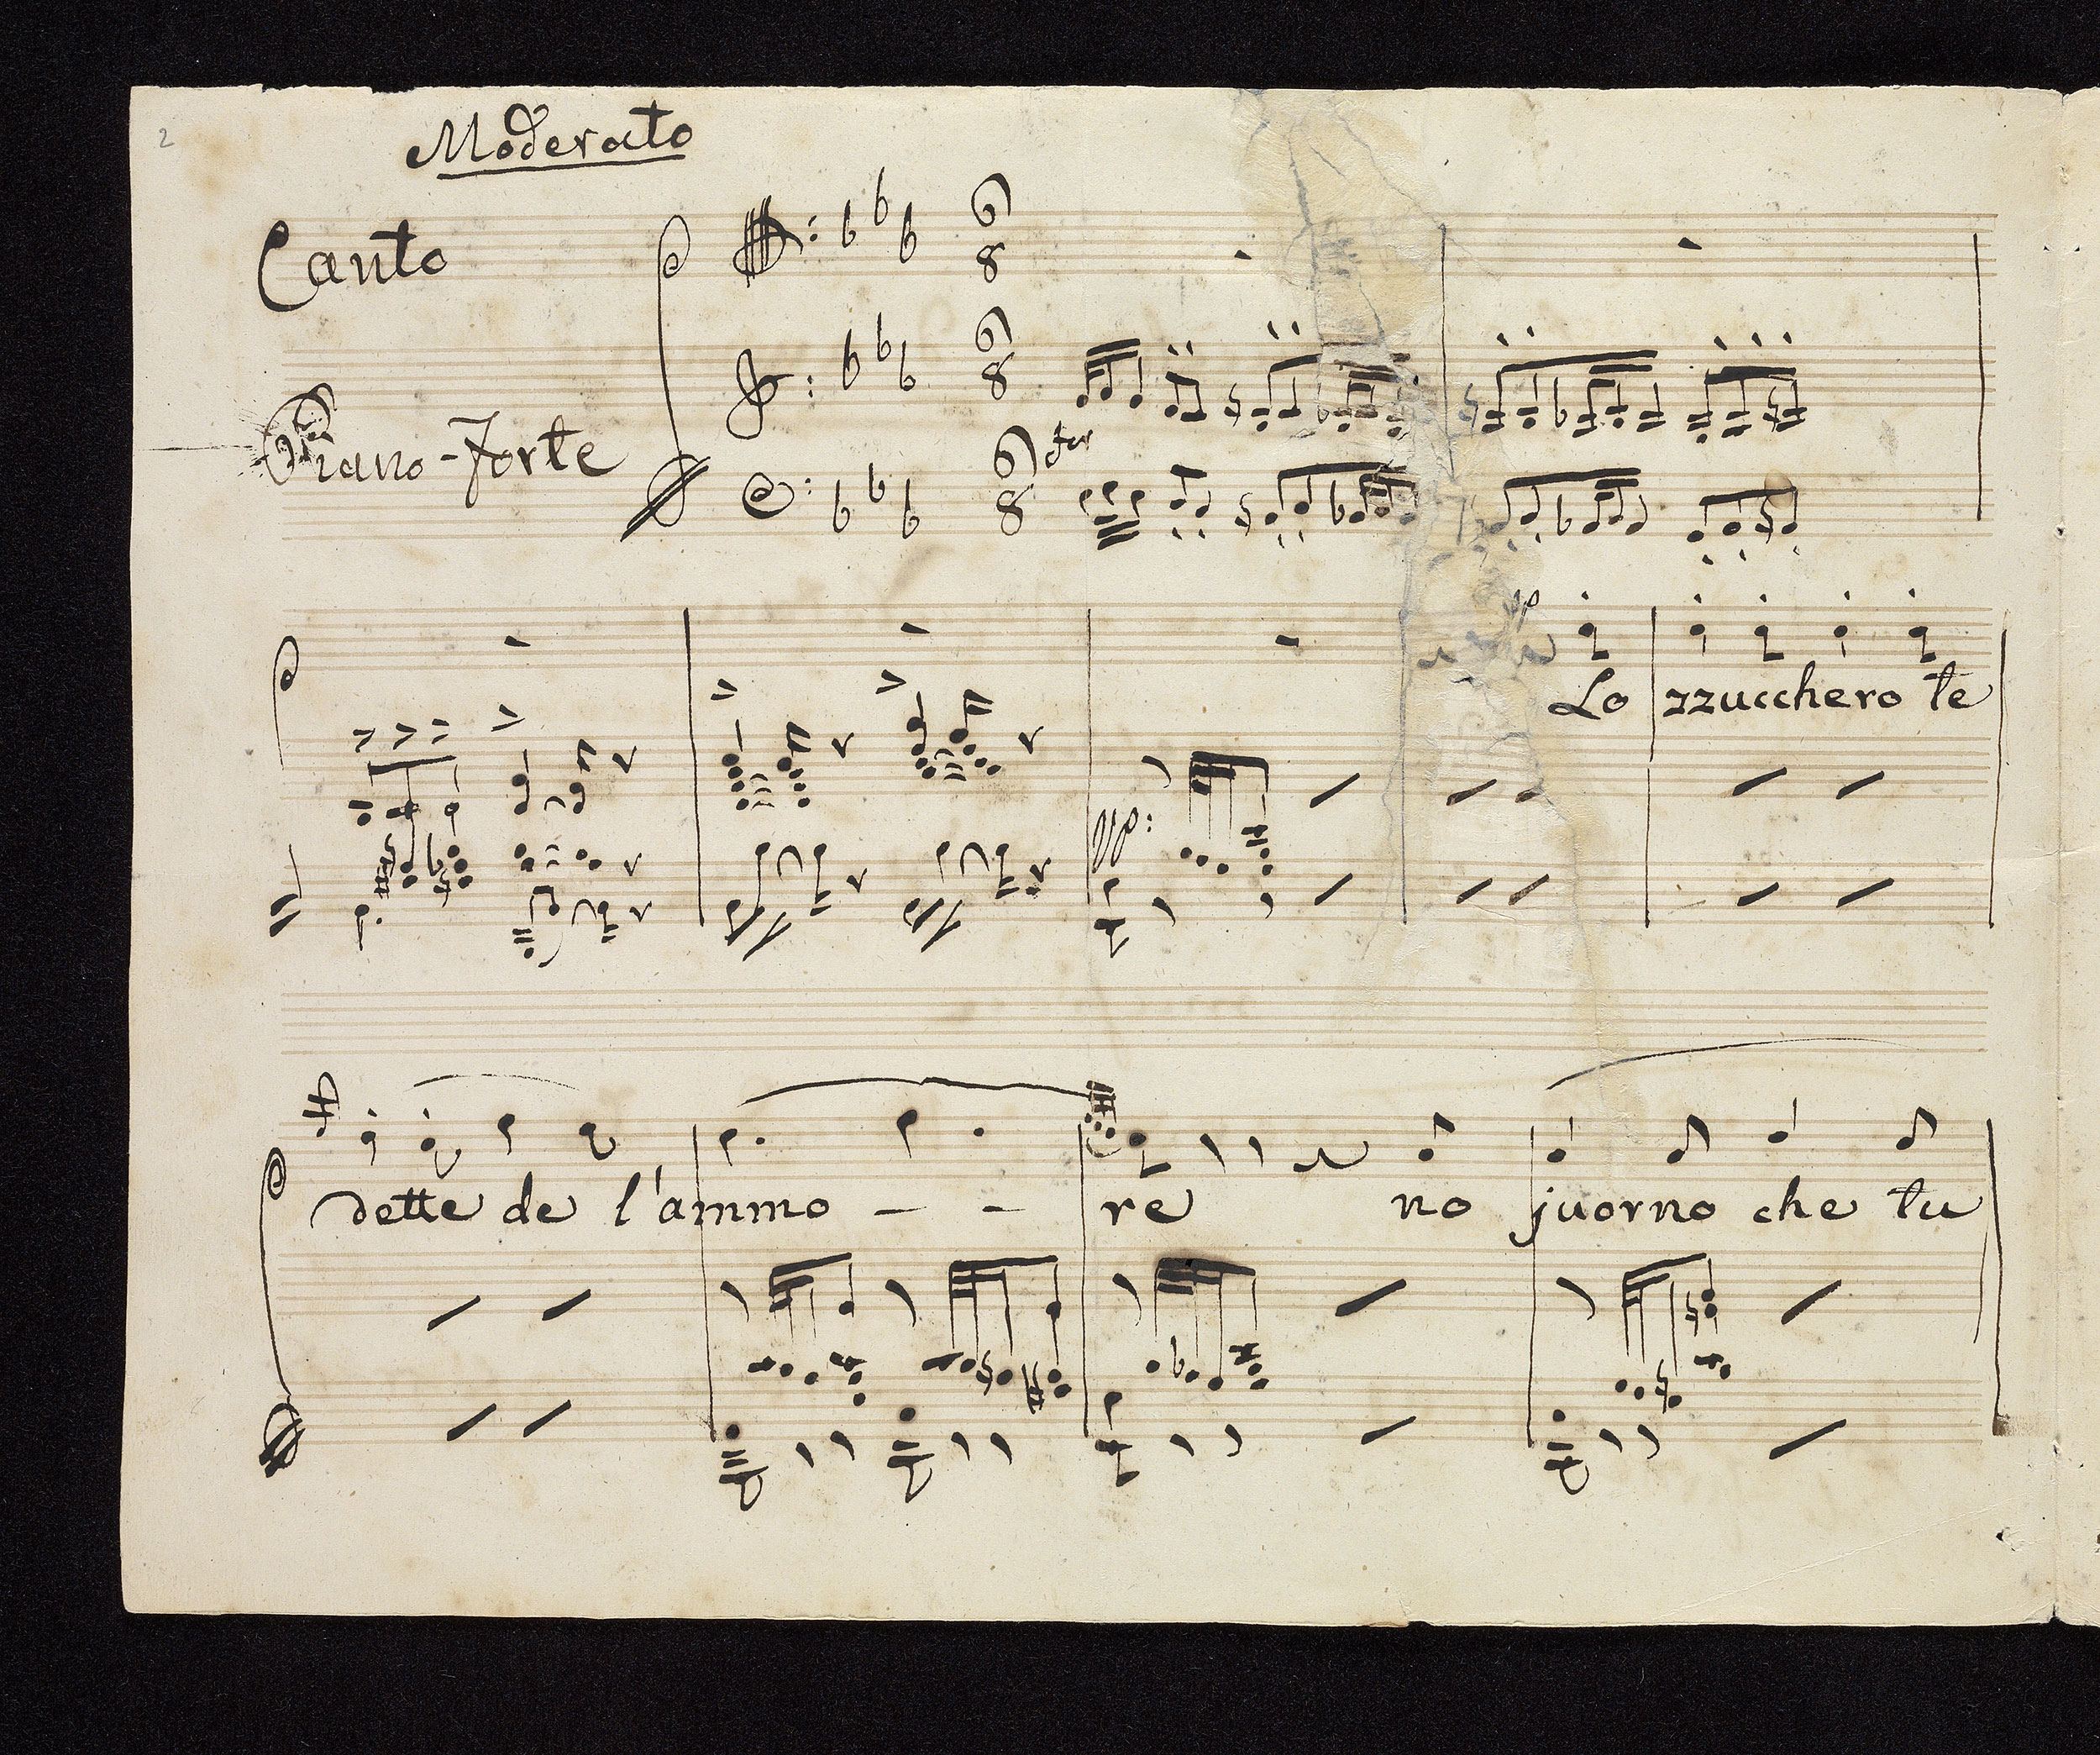 2
Moderato
Canto
6
8
6
8
Piano-Forte
for
6
8
pp
Lo zzucchero te
pp:
dette de l'ammo - - re no juorno che tu